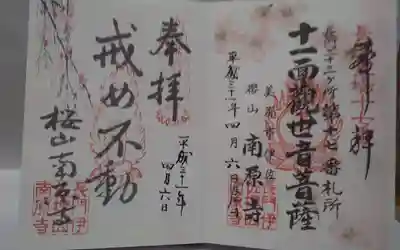 奉拝
長門三十三ヶ所第十七番札所
十一面観世音菩薩
美祢市伊佐
桜山 南原寺
平成三十一年四月六日
奉拝
平成三十一年
四月六日
戒め不動
桜山南原寺